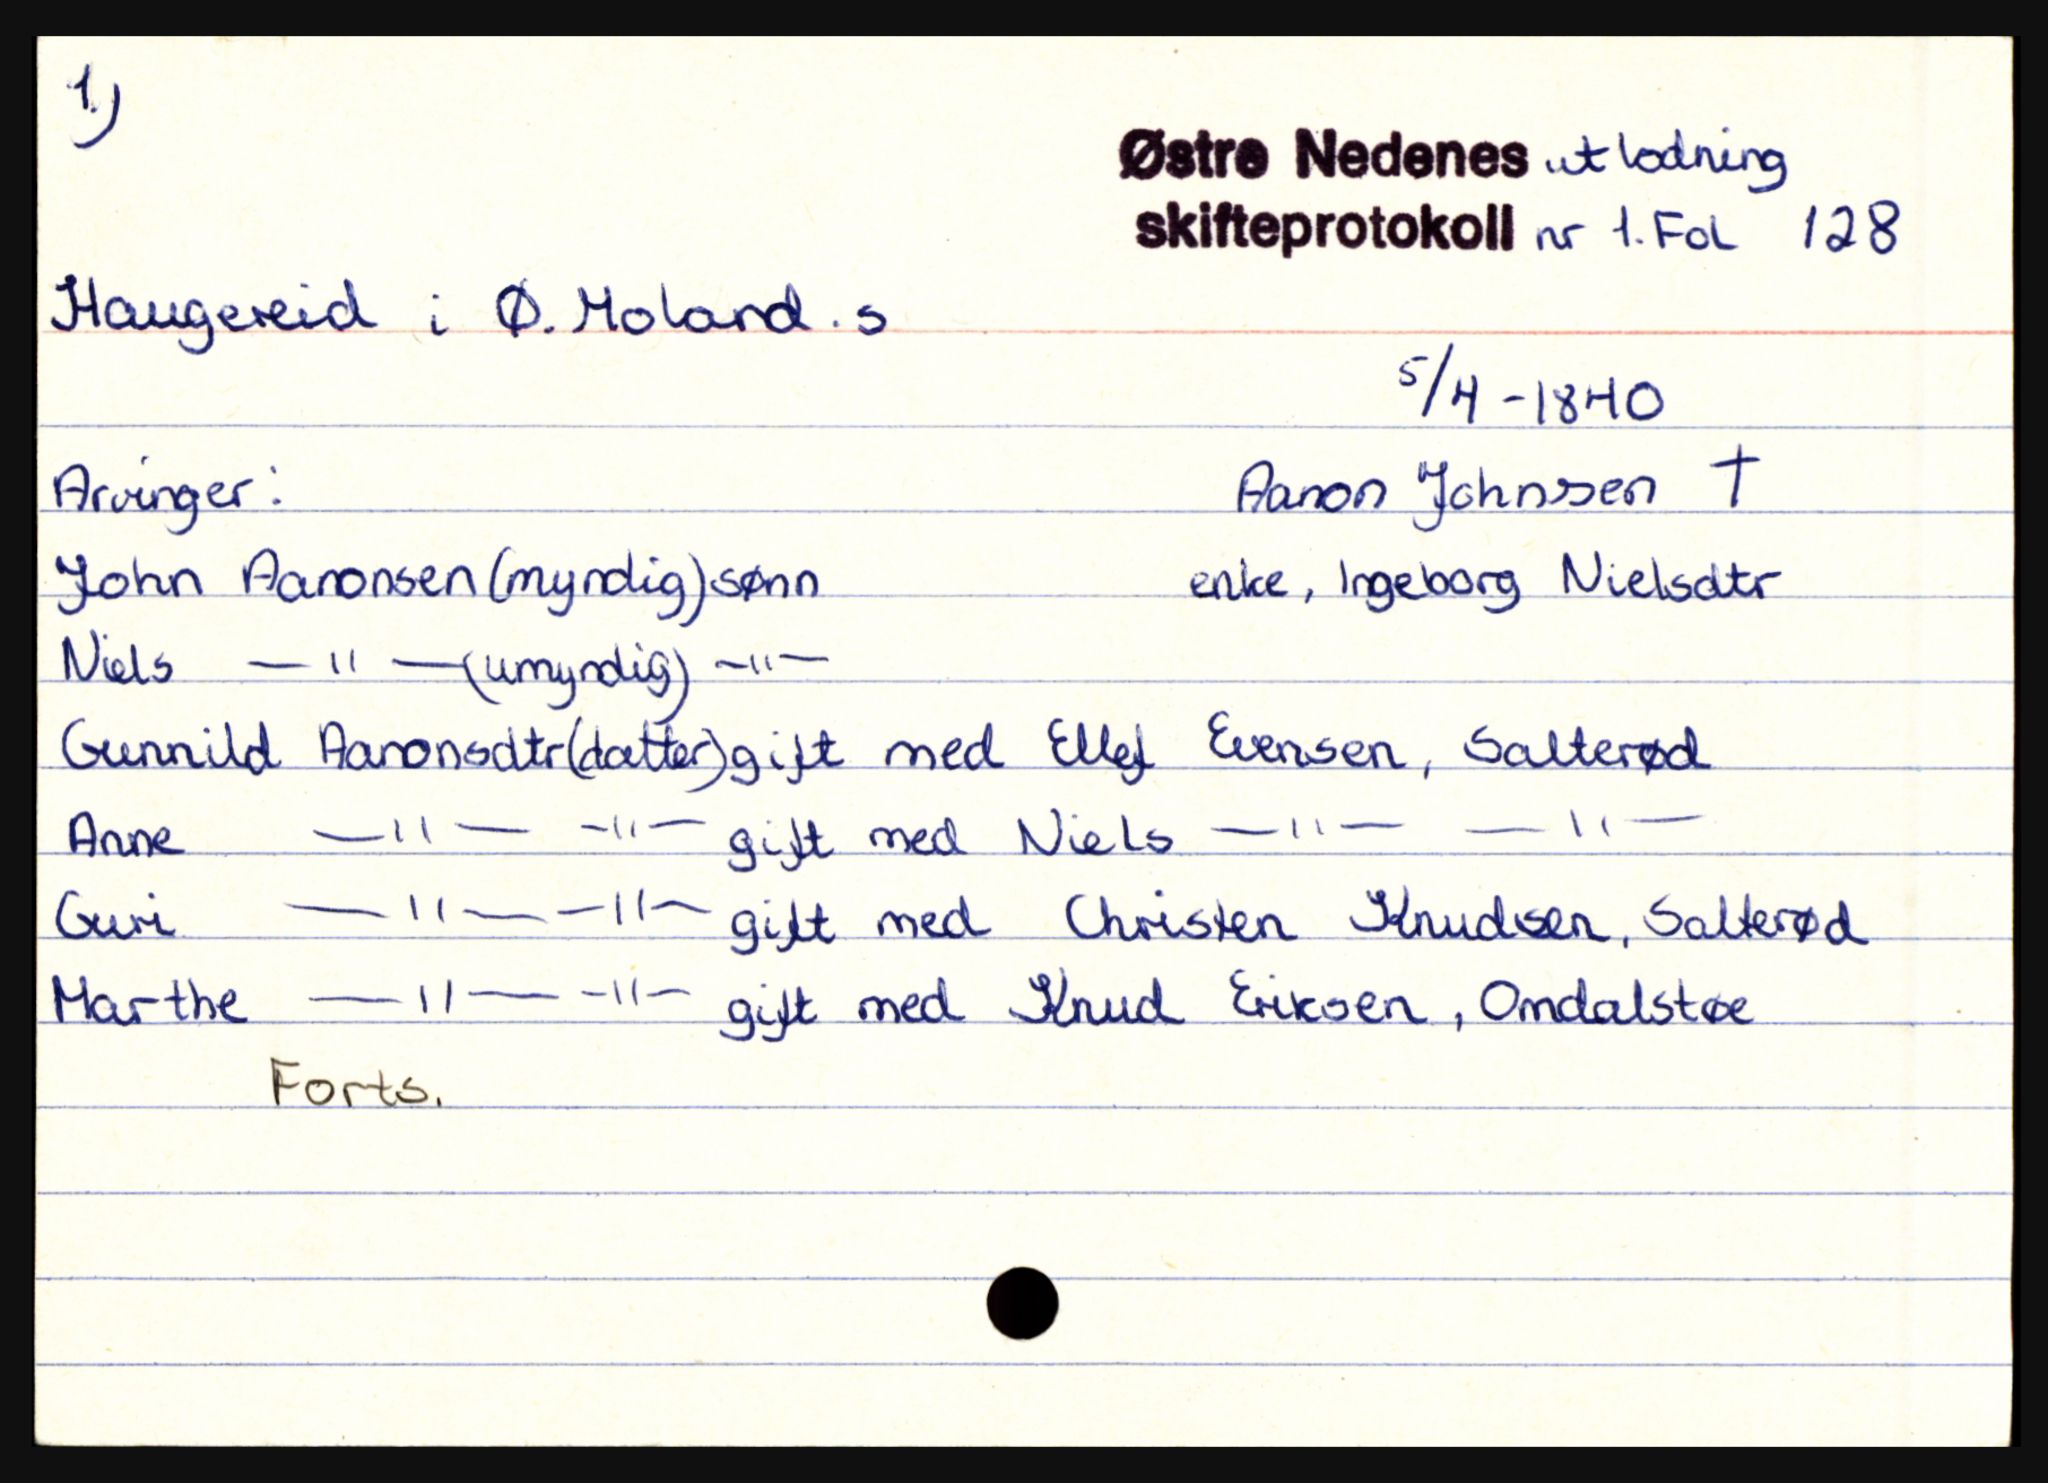 1.)
Østre Nedenes utlodning
skifteprotokoll nr 1. Fol 128
Haugereid i Ø. Moland. s
5/4 - 1840
Arvinger: Aanon Johnssen †
John Aanonsen (myndig) sønn enke, Ingeborg Nielsdtr
Niels — " — (umyndig) — " —
Gunnild Aanonsdtr (datter) gift med Ellef Evensen, Salterød
Anne — " — — " — gift med Niels — " — — " —
Guri — " — — " — gift med Christen Knudsen, Salterød
Marthe — " — — " — gift med Knud Eriksen, Omdalstøe
Forts.